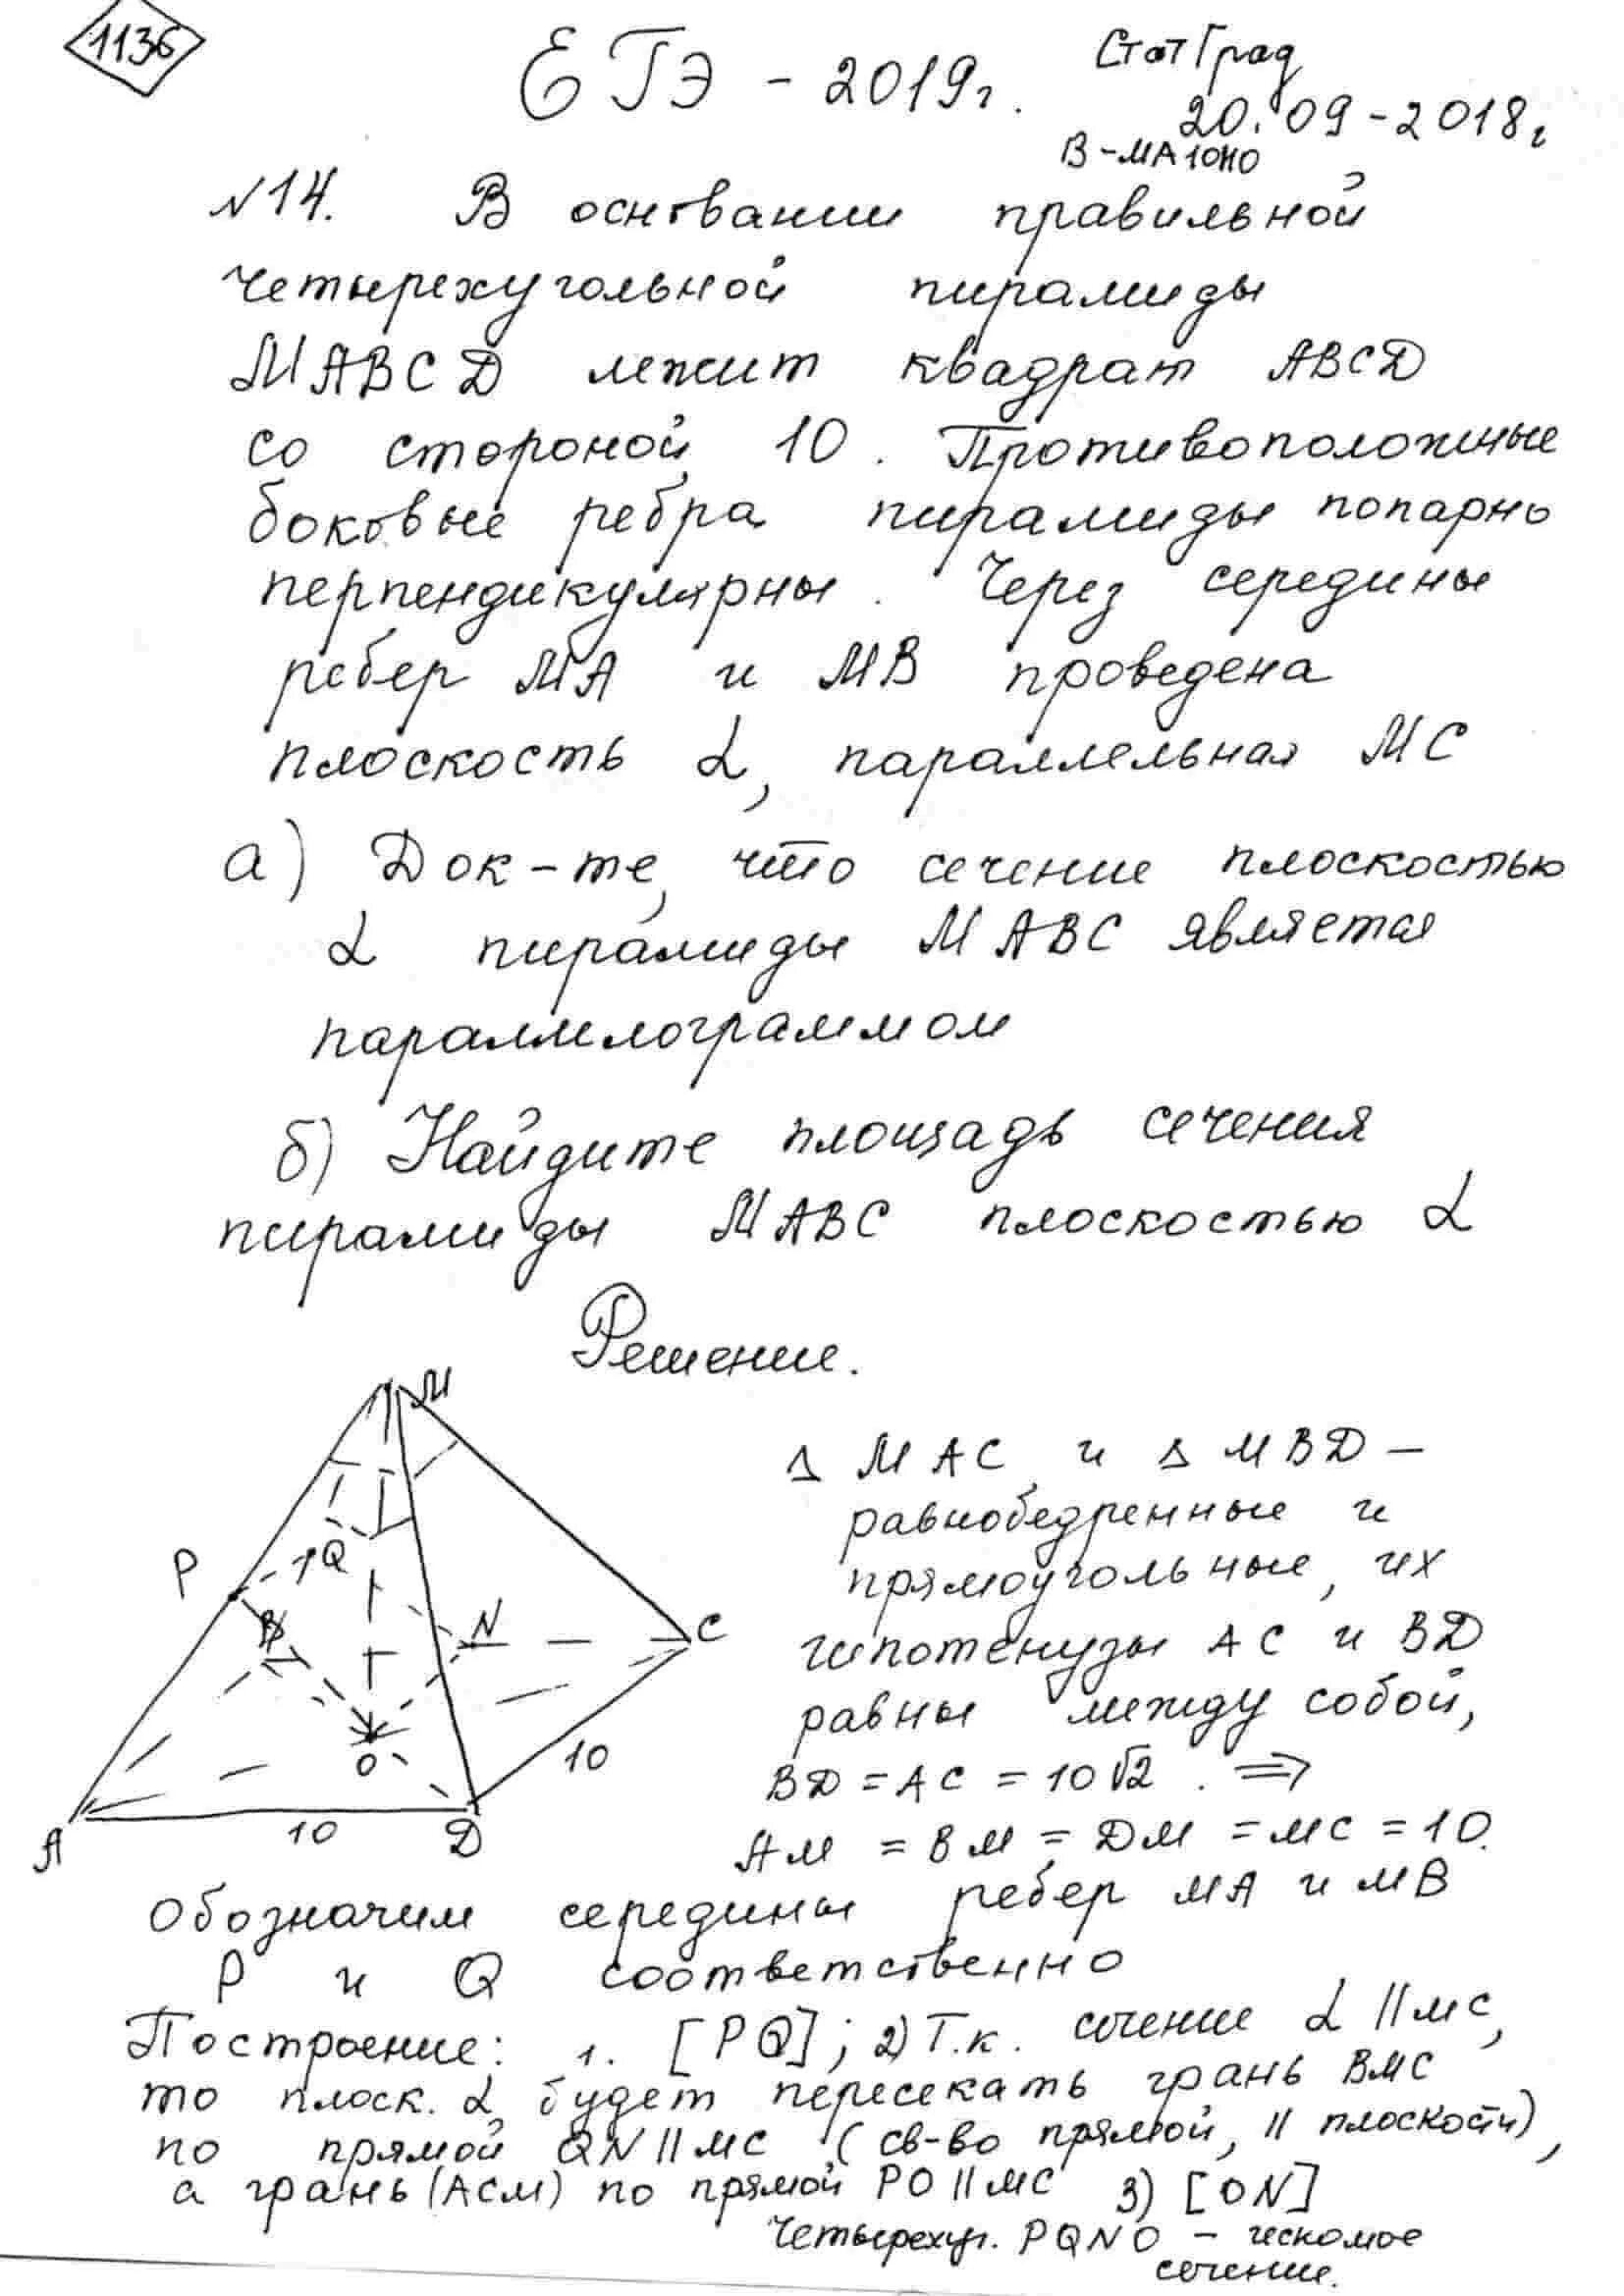 1136
ЕГЭ - 2019г.
СтатГрад
20.09-2018г
В-МА10110
№14. В основании правильной
четырехугольной пирамиды
МАВСD лежит квадрат АВСD
со стороной 10. Противоположные
боковые ребра пирамиды попарно
перпендикулярны. Через середины
ребер МА и МВ проведена
плоскость α, параллельная МС
а) Док-те, что сечение плоскостью
α пирамиды МАВС является
параллелограммом
б) Найдите площадь сечения
пирамиды МАВС плоскостью α
Решение.
M
P
Q
B
N
C
O
10
A
10
D
Δ МАС и Δ МВD –
равнобедренные и
прямоугольные, их
гипотенузы АС и ВD
равны между собой,
ВD = АС = 10√2. ⇒
АМ = ВМ = DМ = МС = 10.
Обозначим середины ребер МА и МВ
Р и Q соответственно
Построение: 1. [PQ]; 2) Т.к. сечение α || МС,
то плоск. α будет пересекать грань ВМС
по прямой QN || МС (св-во прямой, || плоскости),
а грань (АСМ) по прямой РО || МС 3) [ON]
Четырехуг. PQNO – искомое
сечение.